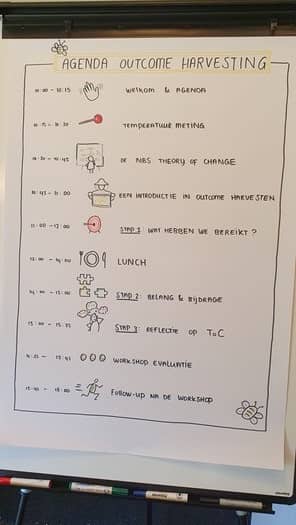 AGENDA OUTCOME HARVESTING
10:00 - 10:15 WELKOM & AGENDA
10:15 - 10:30 TEMPERATUUR METING
10:30 - 10:45 DE NBS THEORY OF CHANGE
10:45 - 11:00 EEN INTRODUCTIE IN OUTCOME HARVESTEN
11:00 - 13:00 STAP 1: WAT HEBBEN WE BEREIKT?
13:00 - 14:00 LUNCH
14:00 - 15:00 STAP 2: BELANG & BIJDRAGE
15:00 - STAP 3: REFLECTIE OP ToC
WORKSHOP EVALUATIE
FOLLOW-UP NA DE WORKSHOP